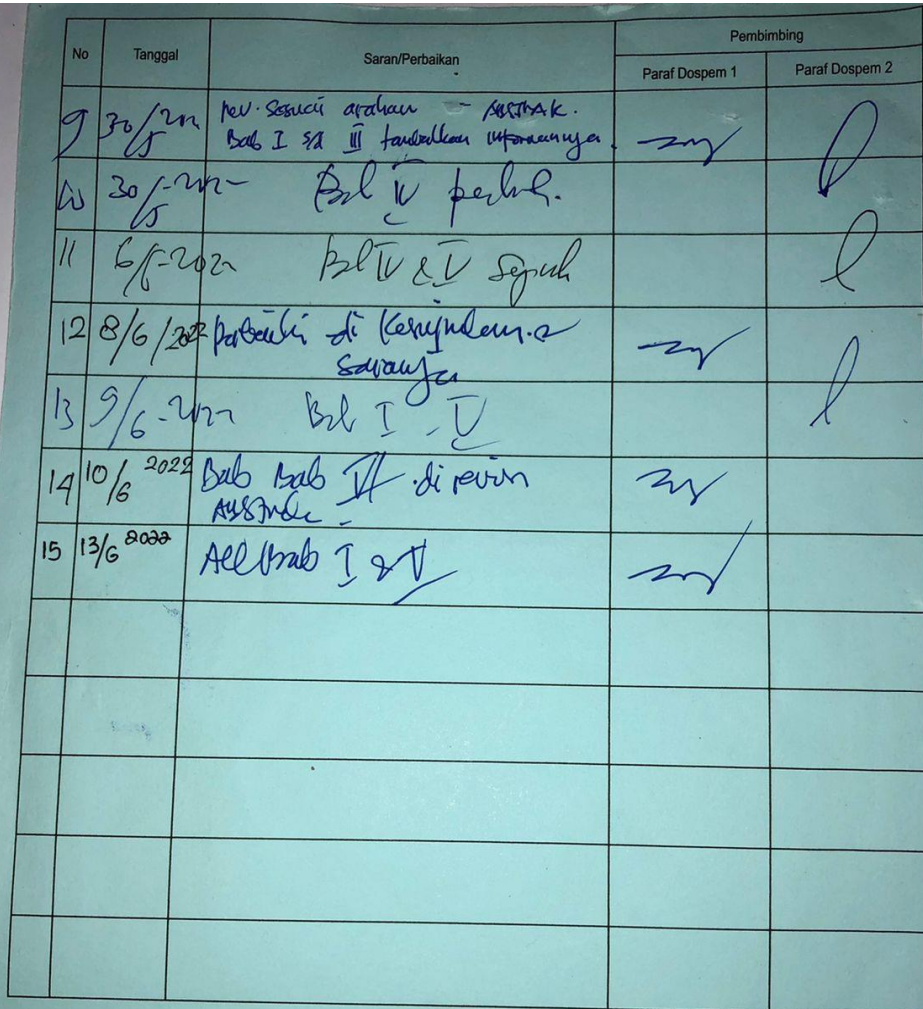 No Tanggal Saran/Perbaikan Pembimbing
Paraf Dospem 1 Paraf Dospem 2
9 30/5 2022 rev. sesuai arahan - ABSTRAK.
Bab I sd III tambahkan informannya.
10 30/5-2022 Bab IV
11 6/-2022 Bab IV & V
12 8/6/2022 Perbaiki di
sarannya
13 9/6-2022 Bab I - V
14 10/6 2022 Bab Bab di revisi
15 13/6 2022 Acc Bab I & V